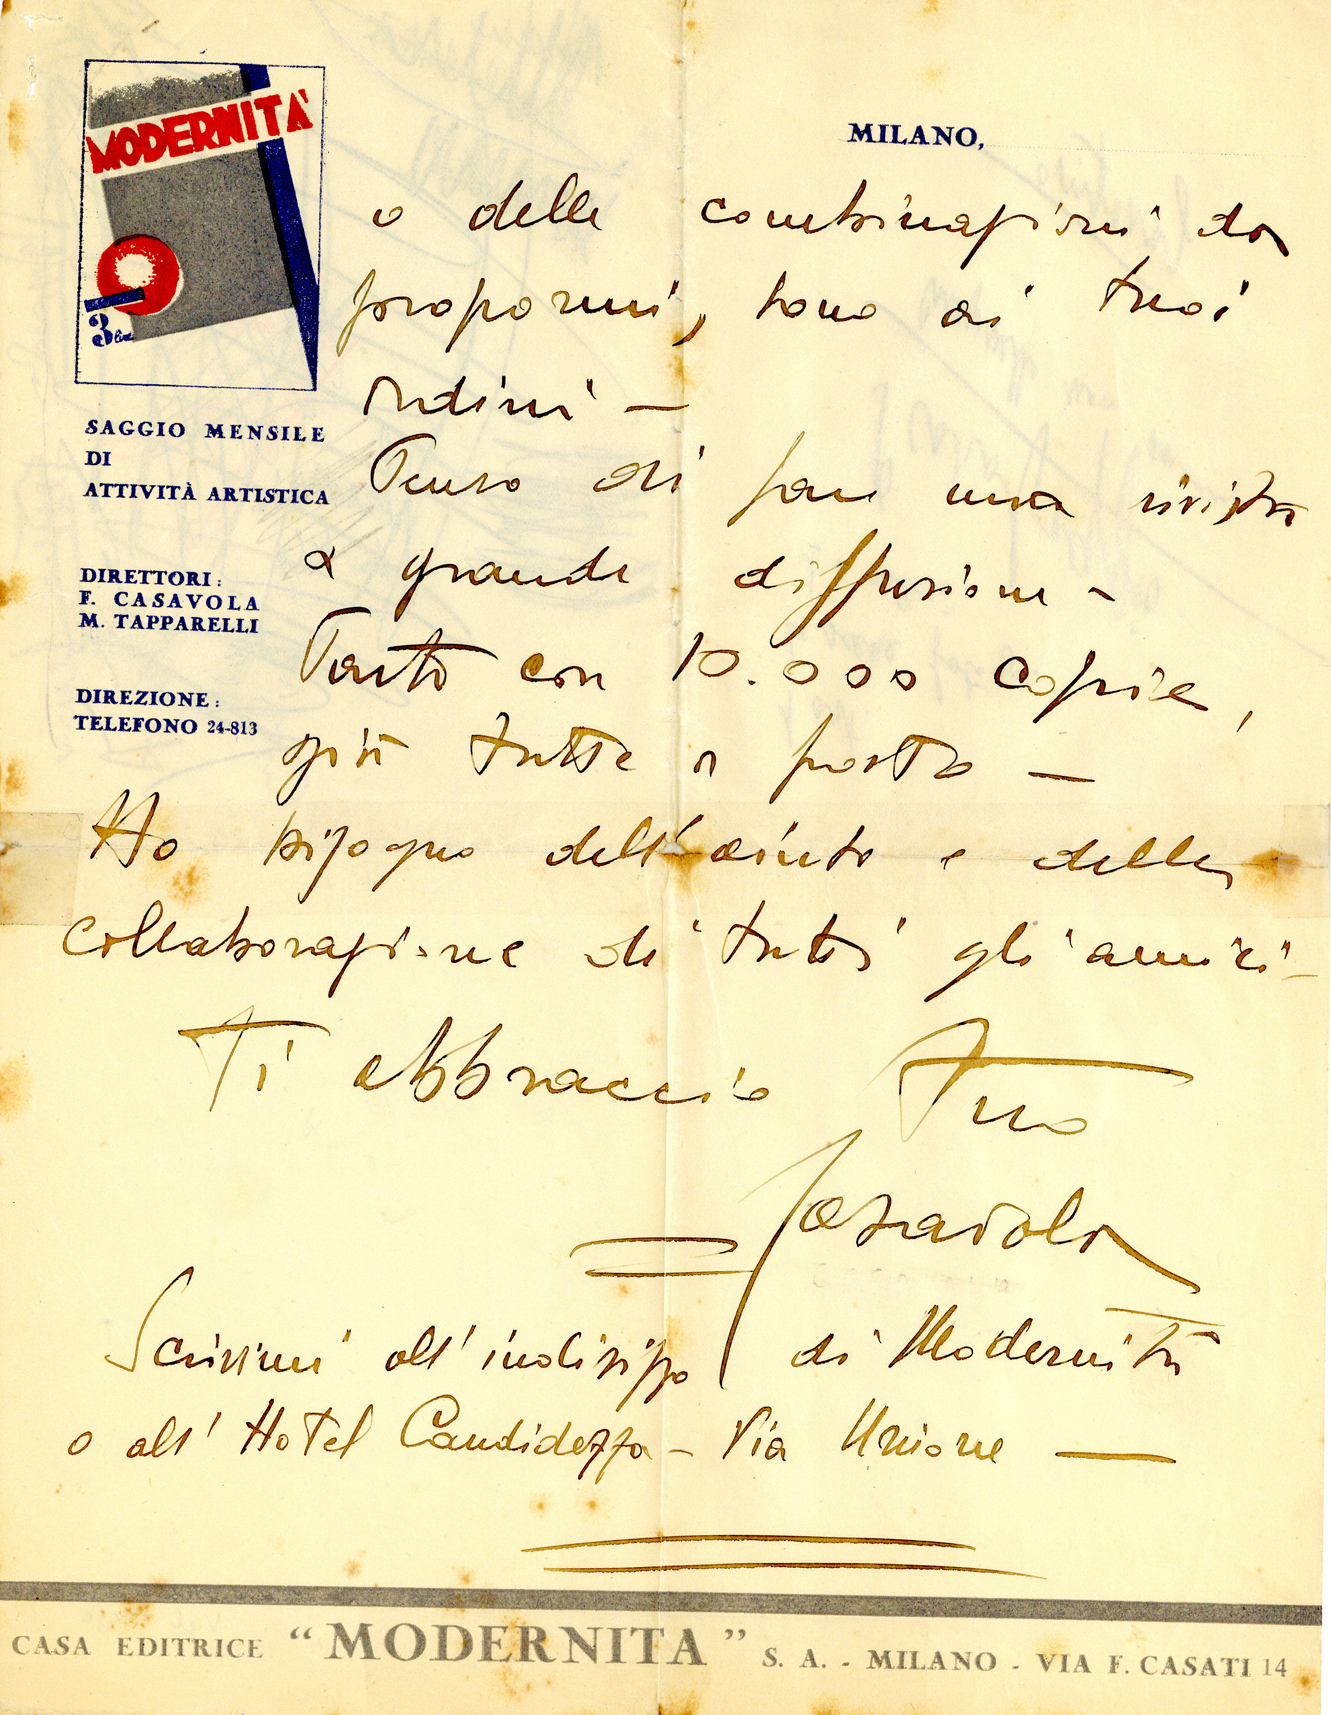 MODERNITÀ
3 lire
SAGGIO MENSILE
DI
ATTIVITÀ ARTISTICA
DIRETTORI:
F. CASAVOLA
M. TAPPARELLI
DIREZIONE:
TELEFONO 24-813
MILANO,
o delle combinazioni da
propormi, sono ai tuoi
ordini —
Penso di fare una rivista
a grande diffusione -
Parto con 10.000 copie,
già tutte a posto —
Ho bisogno dell'aiuto e della
collaborazione di tutti gli amici -
Ti abbraccio Tuo
Casavola
Scrivimi all'indirizzo di Modernità
o all'Hotel Candidezza - Via Unione —
CASA EDITRICE "MODERNITA" S. A. - MILANO - VIA F. CASATI 14